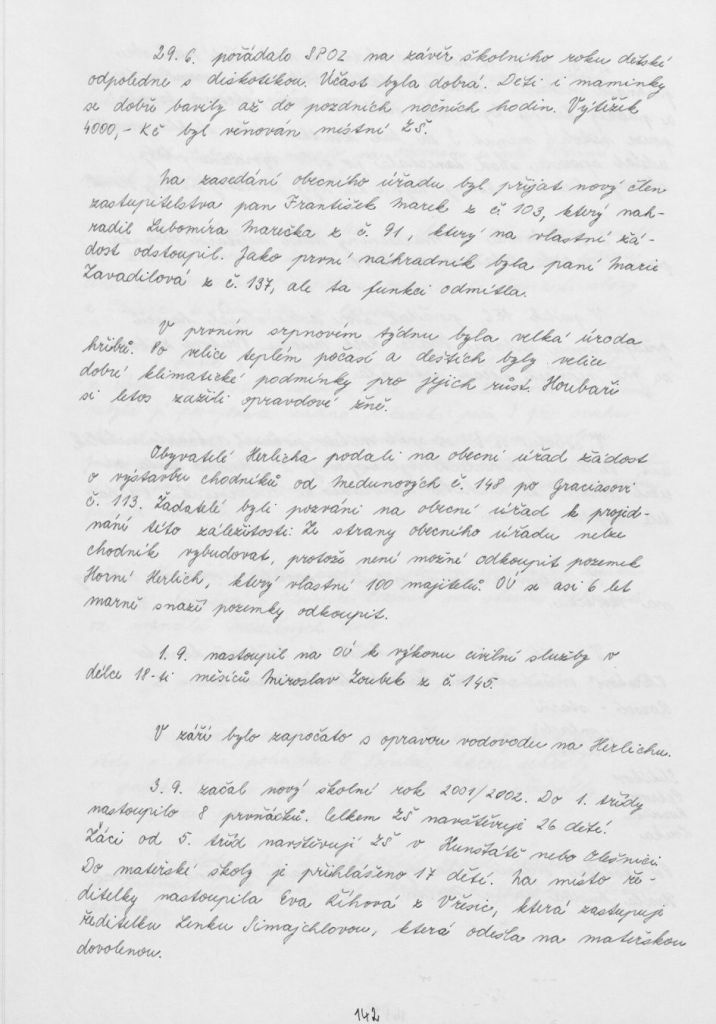 29. 6. pořádalo SPOZ na závěr školního roku dětské
odpoledne s diskotékou. Účast byla dobrá. Děti i maminky
se dobře bavily až do pozdních nočních hodin. Výtěžek
4000,- Kč byl věnován místní ZŠ.
Na zasedání obecního úřadu byl přijat nový člen
zastupitelstva pan František Marek z č. 103, který nah-
radil Lubomíra Marečka z č. 91, který na vlastní žá-
dost odstoupil. Jako první náhradník byla paní Marie
Zavadilová z č. 137, ale ta funkci odmítla.
V prvním srpnovém týdnu byla velká úroda
hřibů. Po velice teplém počasí a deštích byly velice
dobré klimatické podmínky pro jejich růst. Houbaři
si letos zažili opravdové žně.
Obyvatelé Herlicha podali na obecní úřad žádost
o výstavbu chodníků od Medunových č. 148 po Graciasovi
č. 113. Žadatelé byli pozváni na obecní úřad k projed-
nání této záležitosti: Ze strany obecního úřadu nelze
chodník vybudovat, protože není možné odkoupit pozemek
Horní Herlich, který vlastní 100 majitelů. OÚ se asi 6 let
marně snaží pozemky odkoupit.
1. 9. nastoupil na OÚ k výkonu civilní služby v
délce 18-ti měsíců Miroslav Zoubek z č. 145.
V září bylo započato s opravou vodovodu na Herlichu.
3. 9. začal nový školní rok 2001/2002. Do 1. třídy
nastoupilo 8 prvňáčků. Celkem ZŠ navštěvuje 26 dětí.
Žáci od 5. tříd navštěvují ZŠ v Kunštátě nebo Olešnici.
Do mateřské školy je přihlášeno 17 dětí. Na místo ře-
ditelky nastoupila Eva Říhová z Vřesic, která zastupuje
ředitelku Lenku Simajchlovou, která odešla na mateřskou
dovolenou.
142